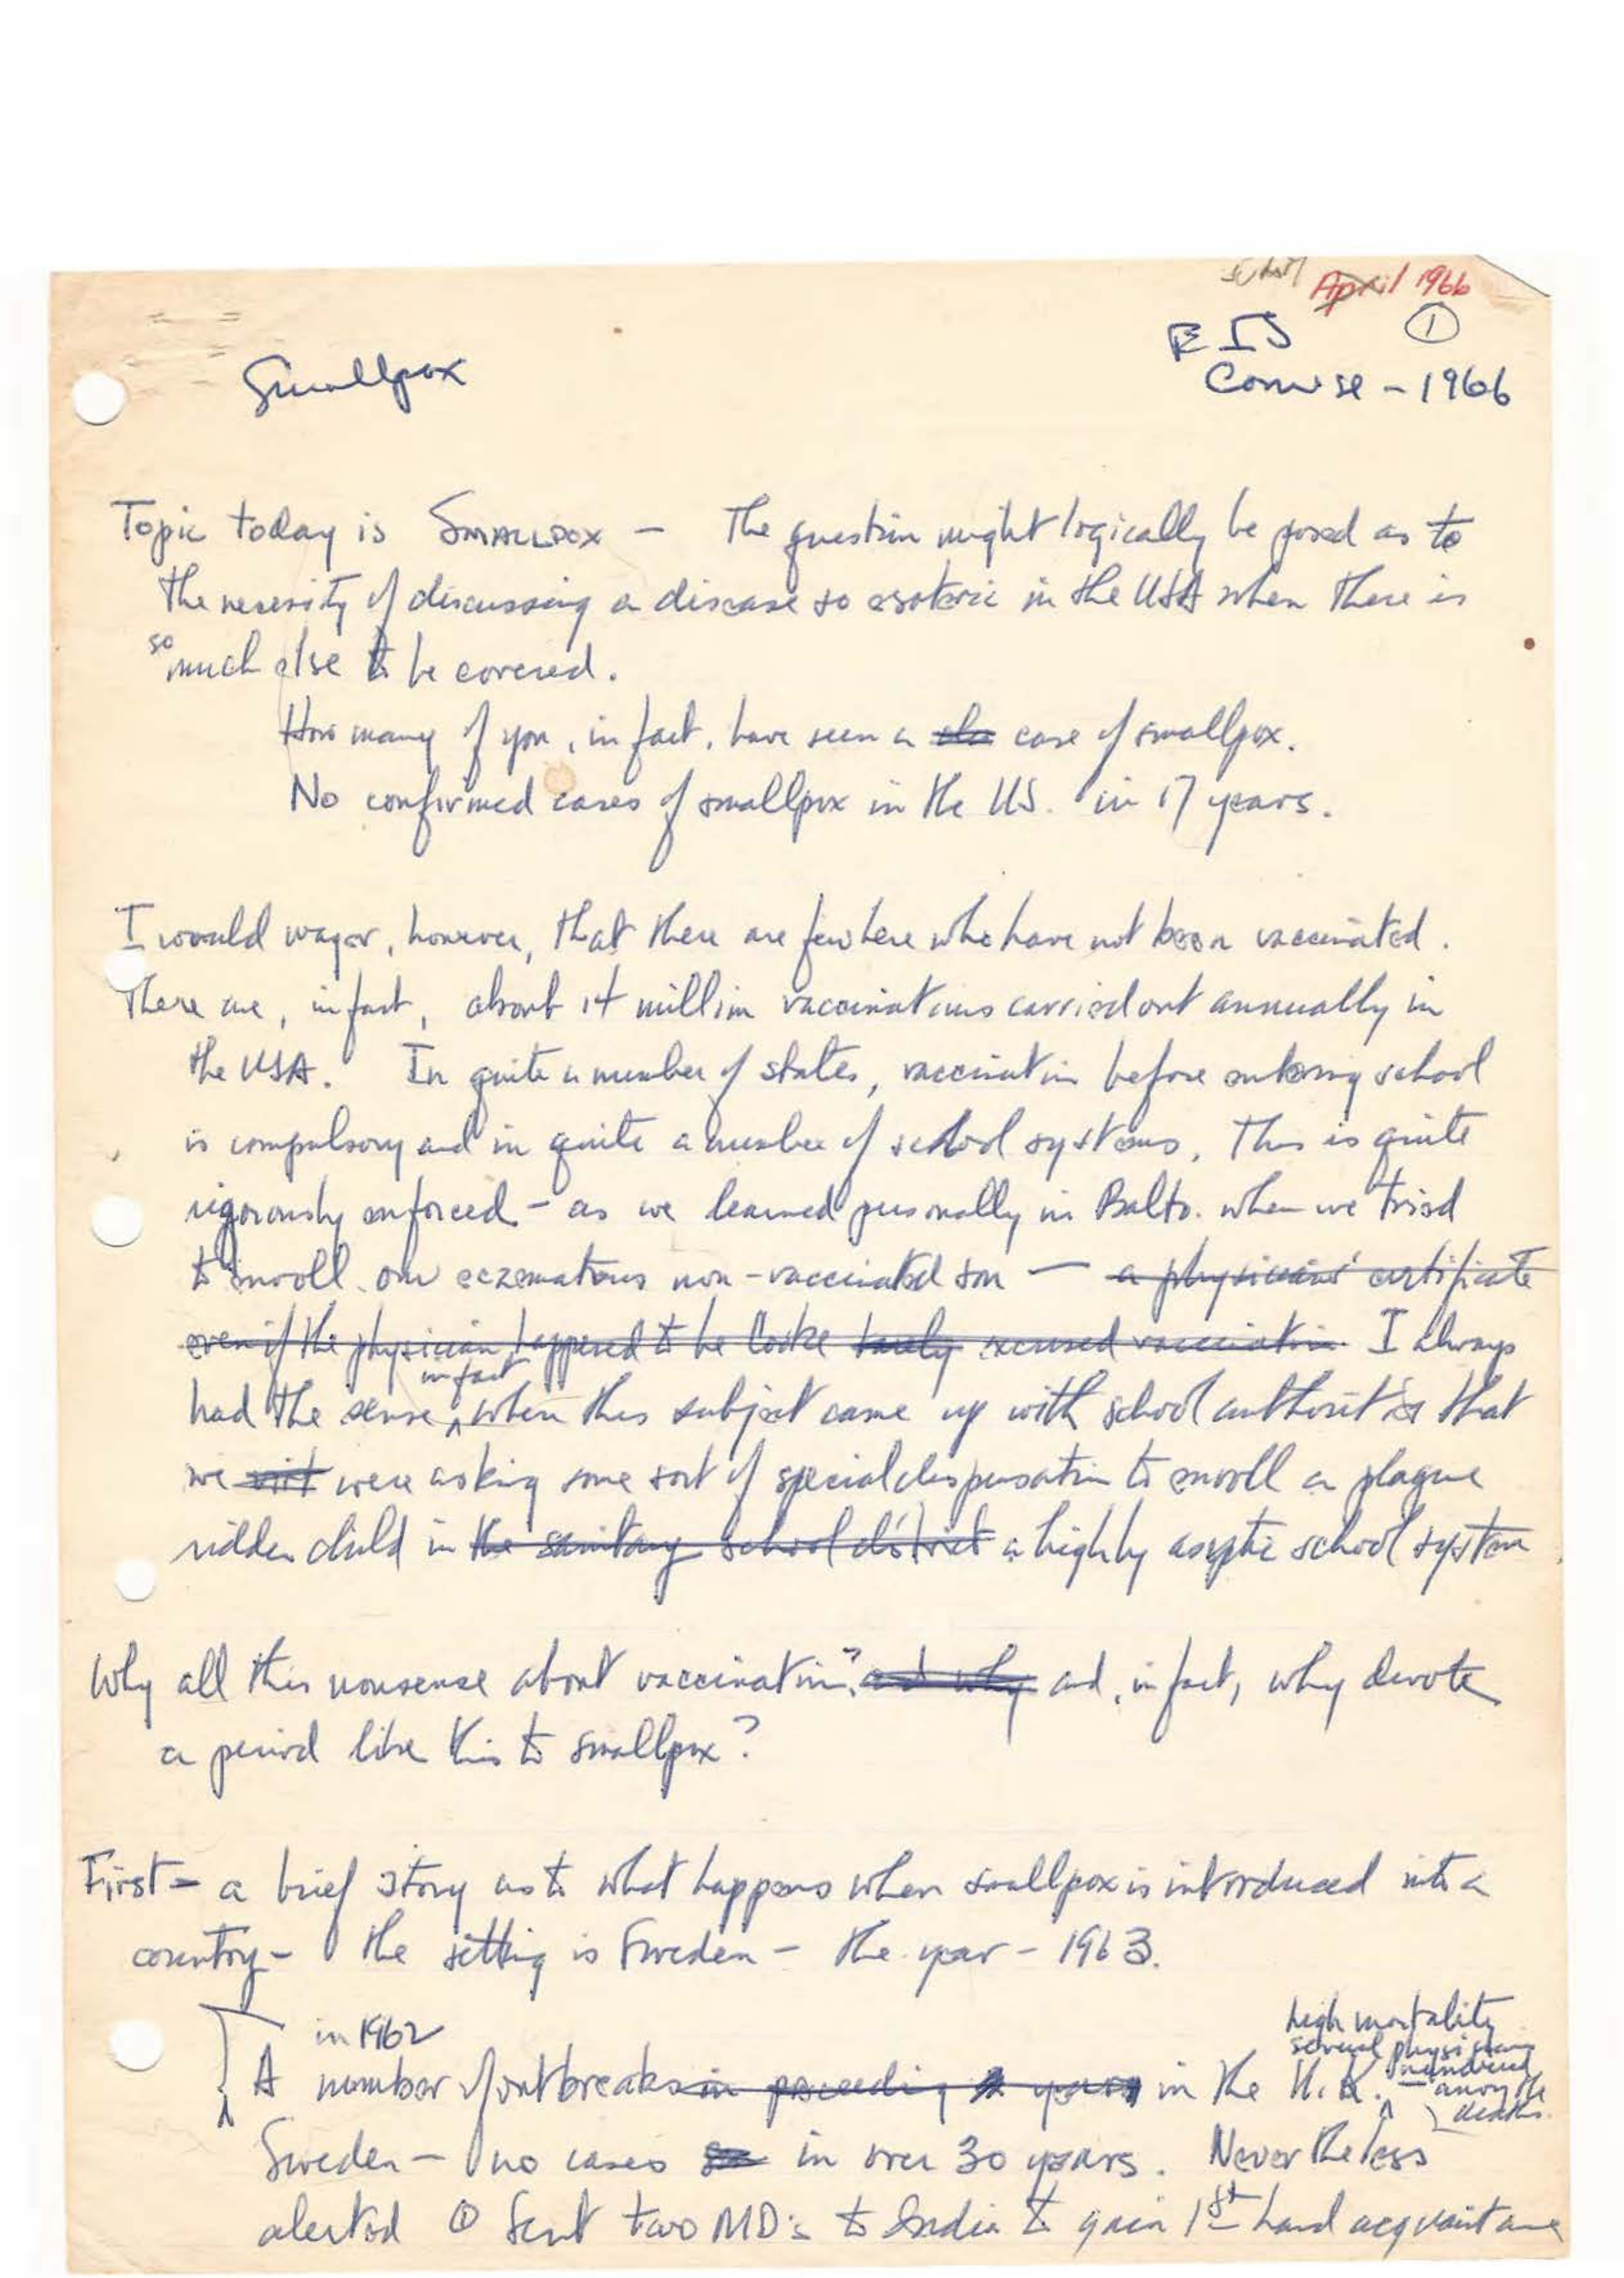 April 1966
EIS ①
Course - 1966
Smallpox
Topic today is SMALLPOX - The question might logically be posed as to
the necessity of discussing a disease so esoteric in the USA when there is
so much else to be covered.
How many of you, in fact, have seen a case of smallpox.
No confirmed cases of smallpox in the US. in 17 years.
I would wager, however, that there are few here who have not been vaccinated.
There are, in fact, about 14 million vaccinations carried out annually in
the USA. In quite a number of states, vaccination before entering school
is compulsory and in quite a number of school systems, this is quite
rigorously enforced - as we learned personally in Balto. when we tried
to enroll our eczematous non-vaccinated son — a physicians' certificate
even if the physician happened to be Cooke rarely excused vaccination I always
had the sense, in fact, when this subject came up with school authorities that
we were asking some sort of special dispensation to enroll a plague
ridden child in the sanitary school district a highly aseptic school system.
Why all this nonsense about vaccination? and why and, in fact, why devote
a period like this to smallpox?
First - a brief story as to what happens when smallpox is introduced into a
country - the setting is Sweden - the year - 1963.
in 1962
high mortality
several physicians
numbered
among the
deaths.
A number of outbreaks in preceding years in the U.K.
Sweden - no cases in over 30 years. Nevertheless
alerted ① Sent two MD's to India to gain 1st hand acquaintance